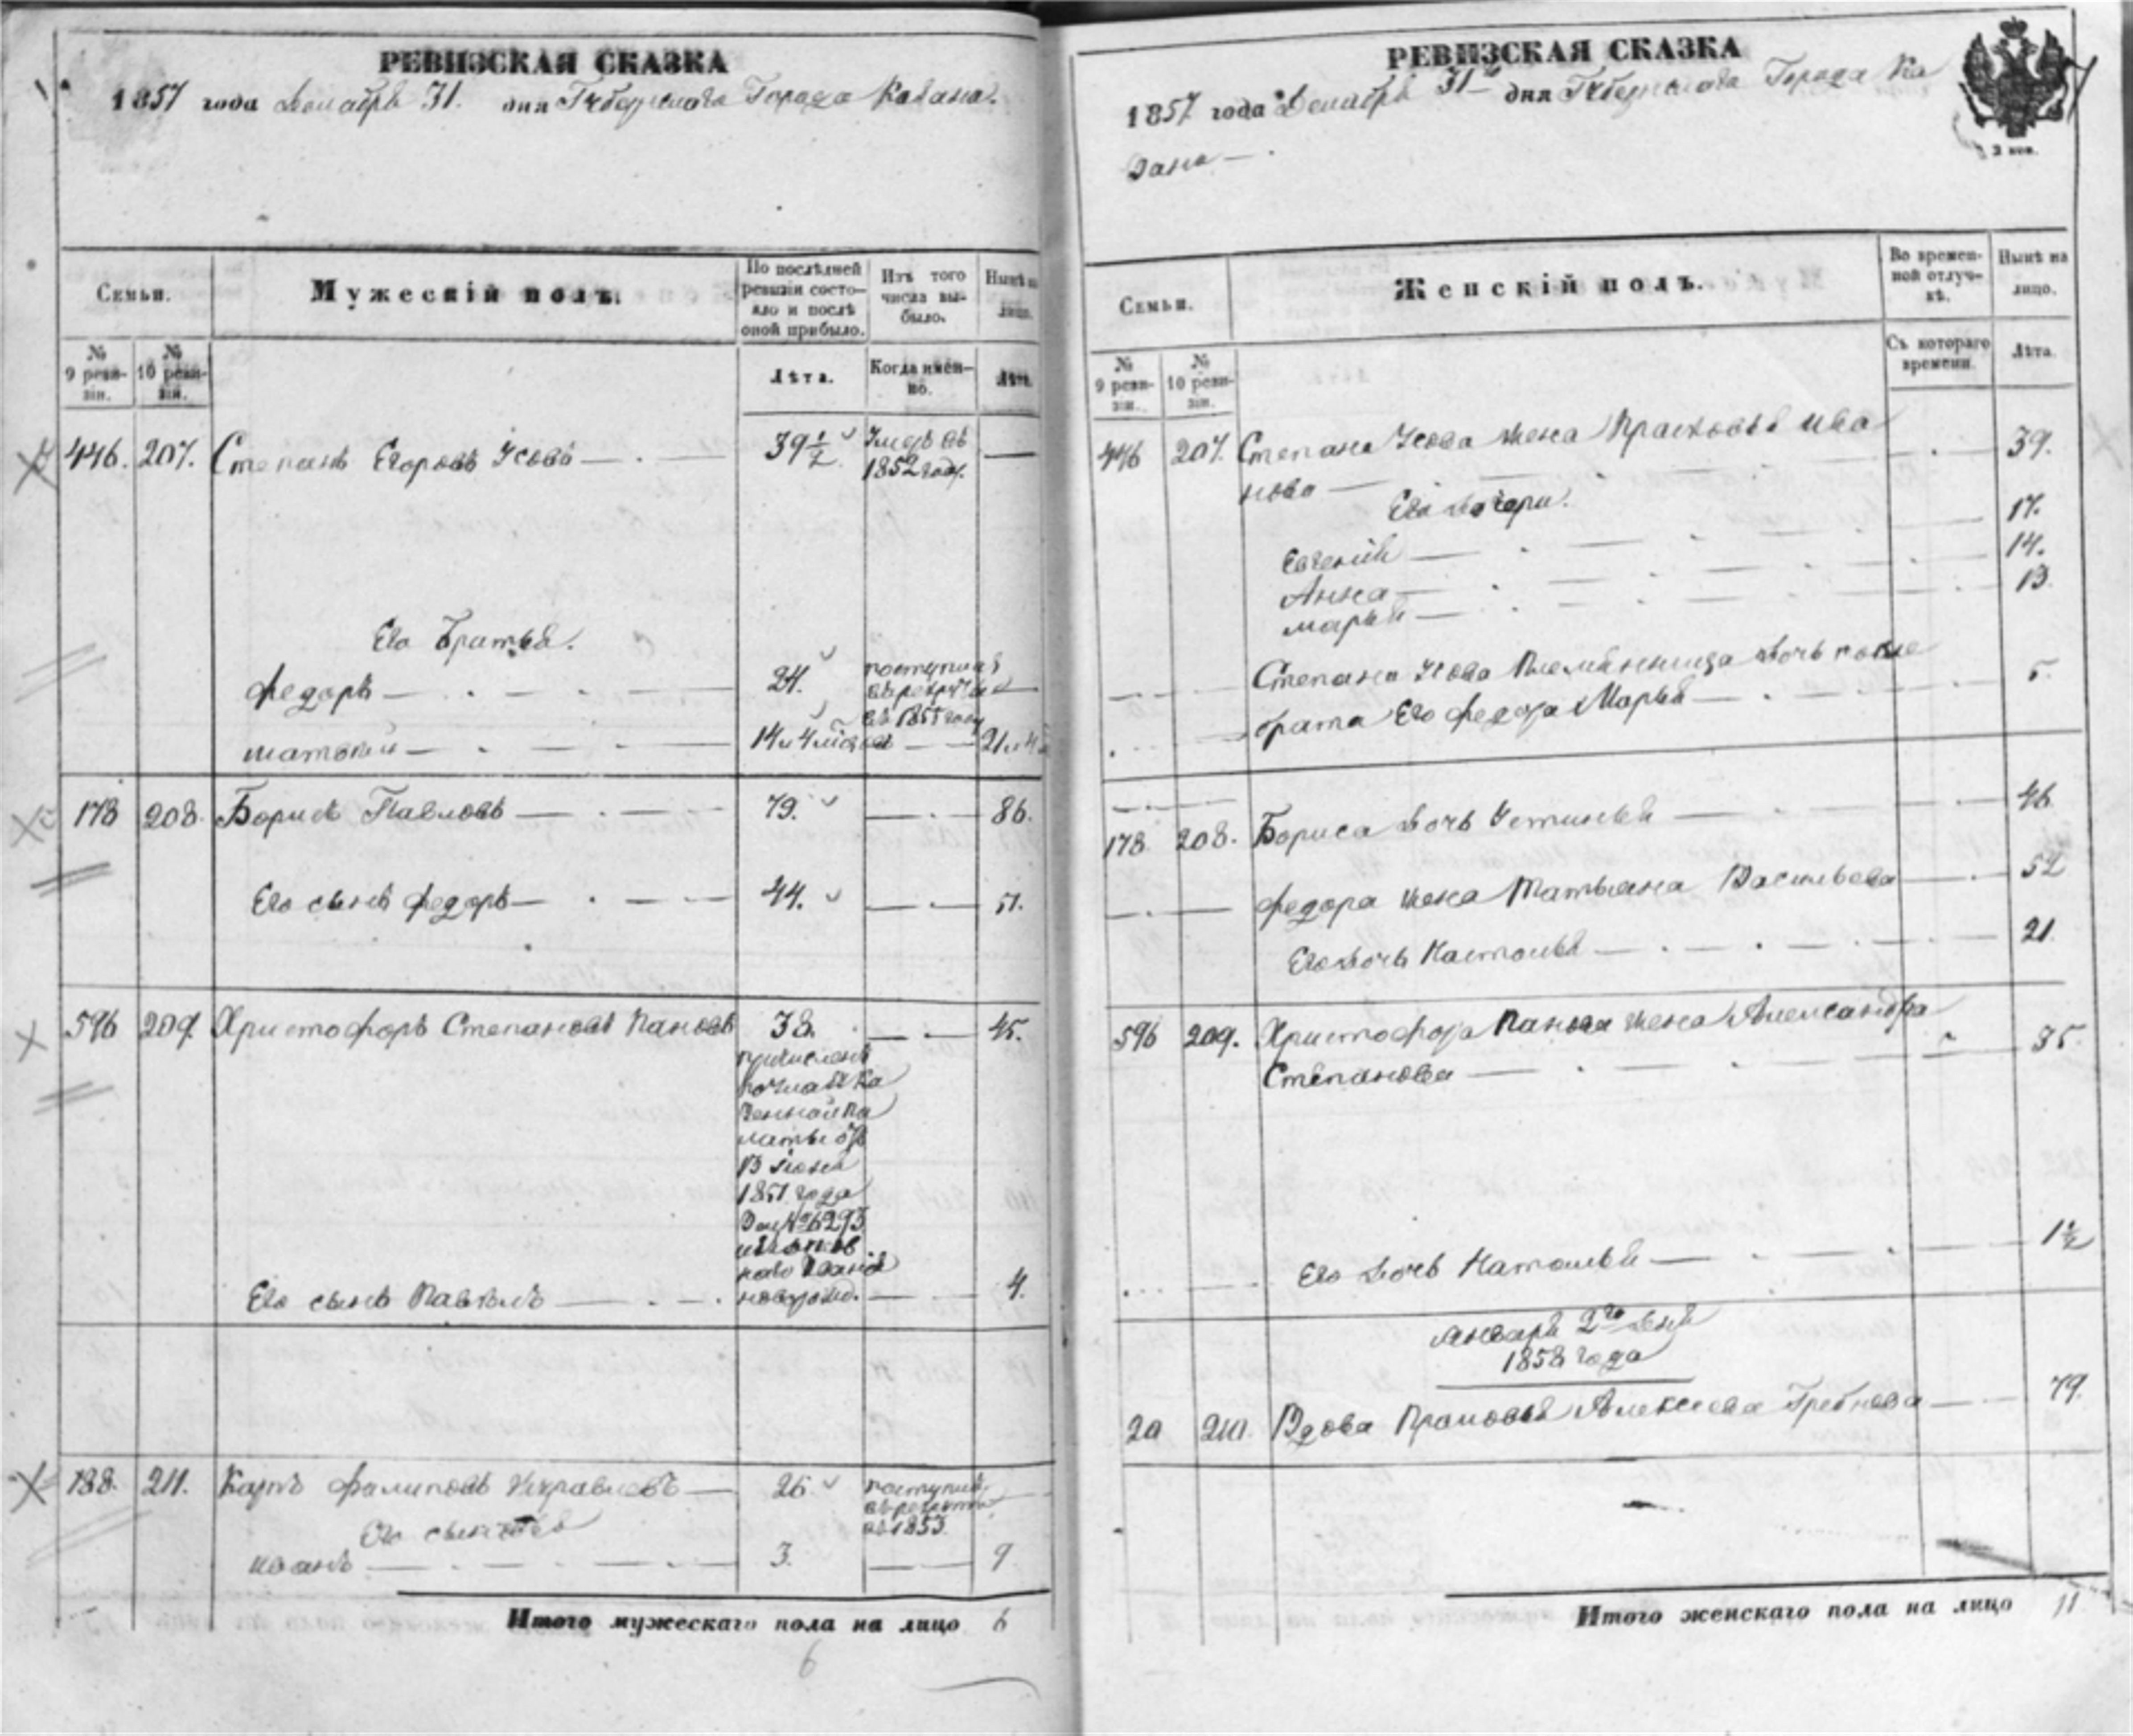 РЕВИЗСКАЯ СКАЗКА
1857 года Декабря 31. дня Губернскаго Города Казана.
Семьи.
Мужескій полъ.
По послѣдней ревизіи состо-
яло и послѣ
оной прибыло.
Изъ того
числа вы-
было.
Нынѣ на
лицо.
№
9 реви-
зіи.
№
10 реви-
зіи.
Лѣта.
Когда имен-
но.
Лѣта.
446. 207. Степанъ Егоровъ Усовъ 39 1/2 Умеръ въ
1852 году.
Его Братья.
Федоръ 24. поступилъ
въ рекруты
въ 1855 году
Матвей 14 и 4 21 и 4
178 208. Борисъ Павловъ 79. 86.
Его сынъ Федоръ 44. 51.
596 209. Христофоръ Степановъ Пановъ 38. 45.
причисленъ
Ка
зенной Па
латы отъ
13 Іюня
1851 года
за № 6293
Его сынъ Павелъ новорожд. 4.
188. 211. Карпъ Филиповъ 26. поступилъ
въ рекруты
въ 1853
Его сынъ
Иванъ 3. 9
Итого мужескаго пола на лицо 6
6
РЕВИЗСКАЯ СКАЗКА
1857 года Декабря 31 дня Губернскаго Города Ка
зана
2 коп.
Семьи.
Женскій полъ.
Во времен-
ной отлуч-
кѣ.
Нынѣ на
лицо.
№
9 реви-
зіи.
№
10 реви-
зіи.
Съ котораго
времени.
Лѣта.
446 207. Степана Усова жена Прасковья Ива
нова 39.
Его дочери.
Евгенія 17.
Анна 14.
Марья 13.
Степана Усова Племянница дочь
брата Его Федора Марья 5.
178. 208. Бориса дочь Устинья 46.
Федора жена Татьяна Васильева 52
Его дочь Настасья 21.
596 209. Христофора Панова жена Александра
Степанова 35.
Его дочь Наталья 1 1/2
Января 2го дня
1858 года
20 210. Вдова Прасковья Алексеева Гребнева 79.
Итого женскаго пола на лицо 11